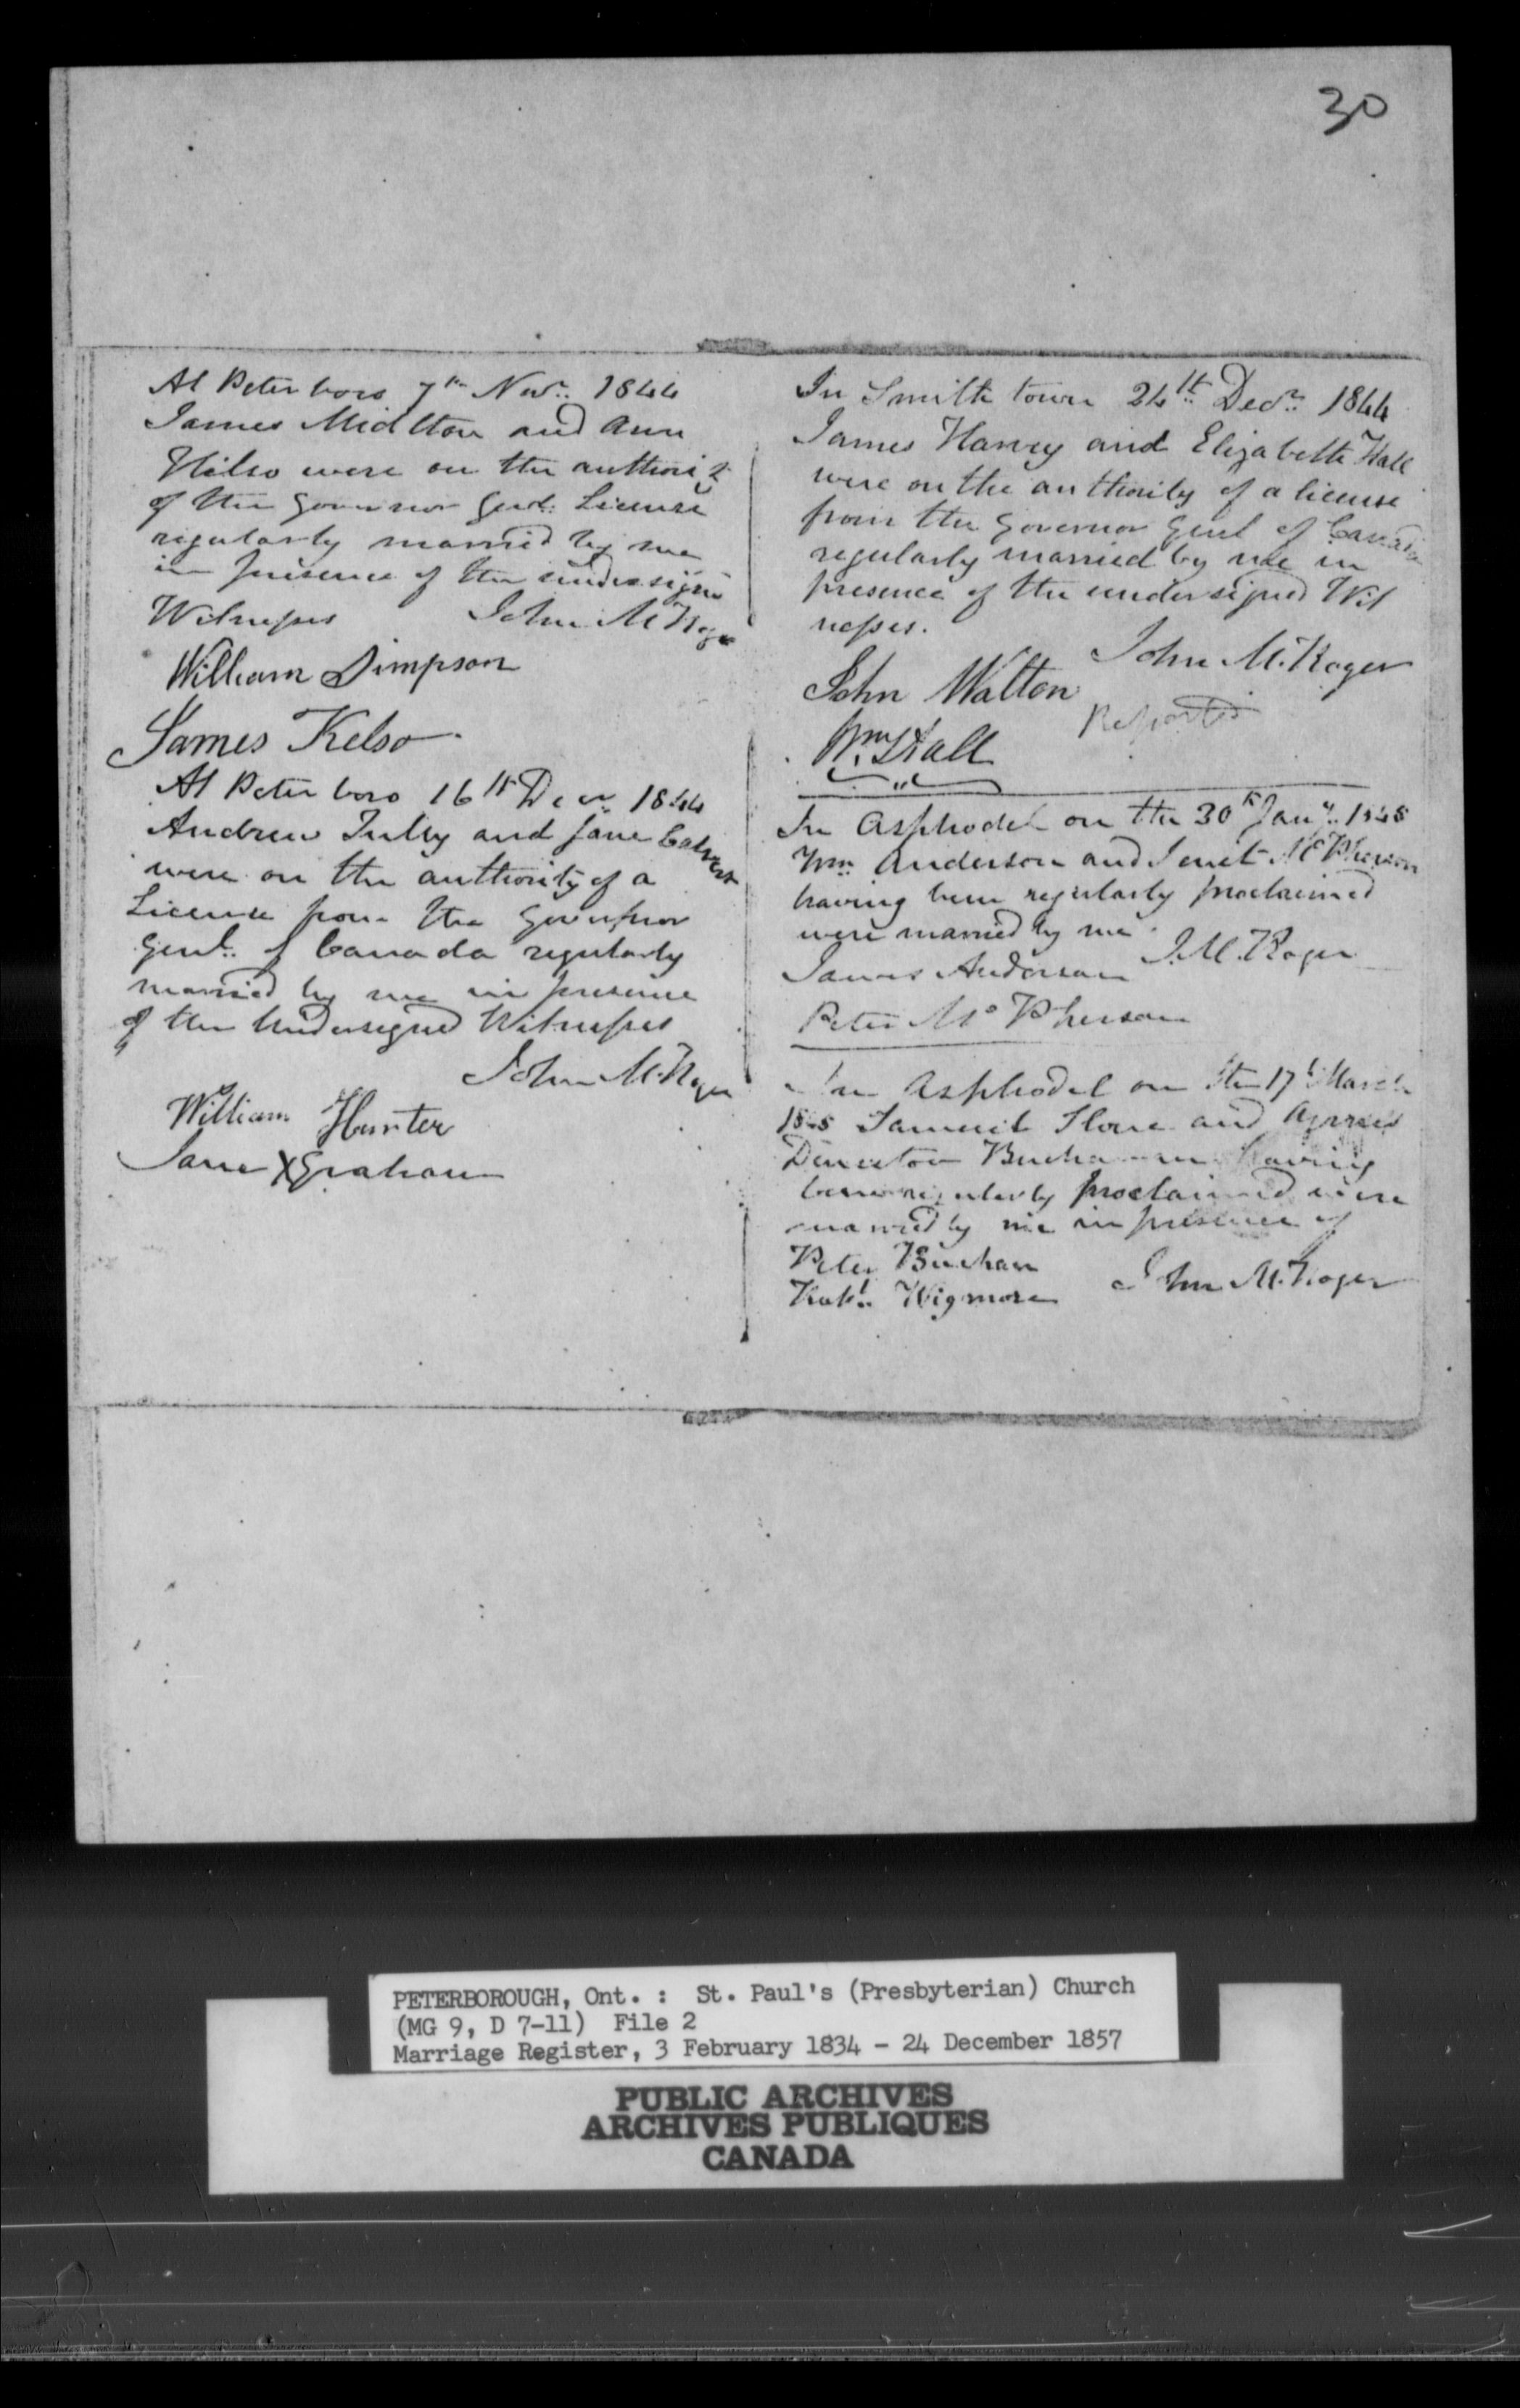 30
At Peterboro 7th Novr. 1844
James Midlton and Ann
Hilso were on the authority
of the Governor Genl. License
regularly married by me
in presence of the undersigne
Witnesses John M. Roger
William Simpson
James Kelso
At Peterboro 16th Decr. 1844
Andrew Tully and Jane Calvert
were on the authority of a
License from the Governor
Genl. of Canada regularly
married by me in presence
of the Undersigned Witnesses
John M. Roger
William Hunter
Jane X Graham
In Smith town 24th Decr. 1844
James Harvey and Elizabeth Hall
were on the authority of a license
from the Governor Genl of Canada
regularly married by me in
presence of the undersigned Wit
nesses.
John M. Roger
John Walton
Reported
Wm. Hall
In Asphodel on the 30th Jany. 1845
Wm. Anderson and Jenet McPherson
having been regularly proclaimed
were married by me
J. M. Roger
James Anderson
Peter McPherson
In Asphodel on the 17th March
1845 Samuel Stone and Agnes
Buchanan having
been regularly proclaimed were
married by me in presence of
Peter Buchan
John M. Roger
Robt. Wigmore
PETERBOROUGH, Ont. : St. Paul's (Presbyterian) Church
(MG 9, D 7-11) File 2
Marriage Register, 3 February 1834 - 24 December 1857
PUBLIC ARCHIVES
ARCHIVES PUBLIQUES
CANADA